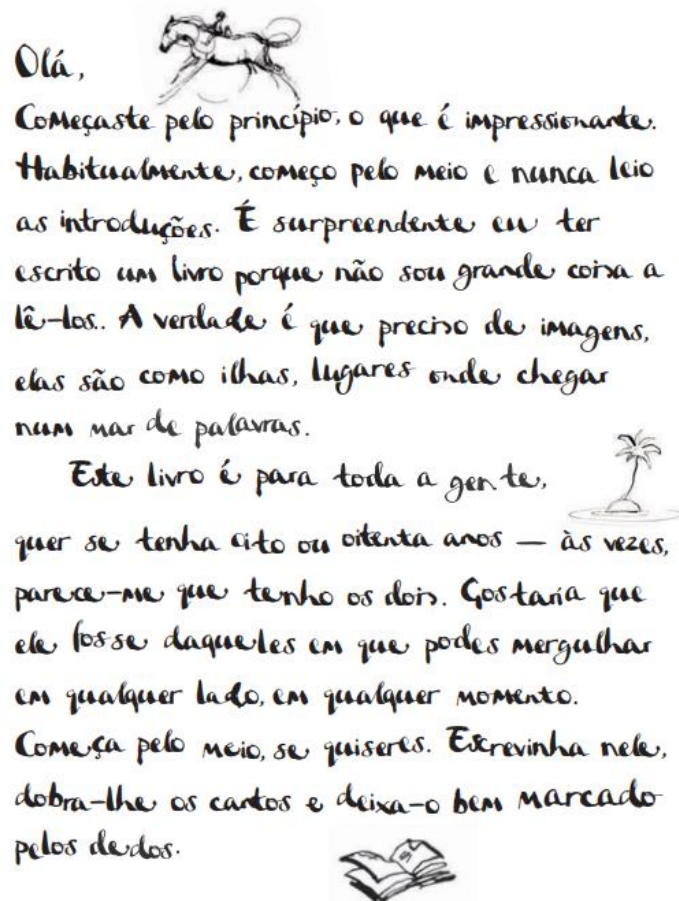 Olá,
Começaste pelo princípio, o que é impressionante.
Habitualmente, começo pelo meio e nunca leio
as introduções. É surpreendente eu ter
escrito um livro porque não sou grande coisa a
lê-los.. A verdade é que preciso de imagens,
elas são como ilhas, lugares onde chegar
num mar de palavras.
Este livro é para toda a gente,
quer se tenha oito ou oitenta anos — às vezes,
parece-me que tenho os dois. Gostaria que
ele fosse daqueles em que podes mergulhar
em qualquer lado, em qualquer momento.
Começa pelo meio, se quiseres. Escrevinha nele,
dobra-lhe os cantos e deixa-o bem marcado
pelos dedos.